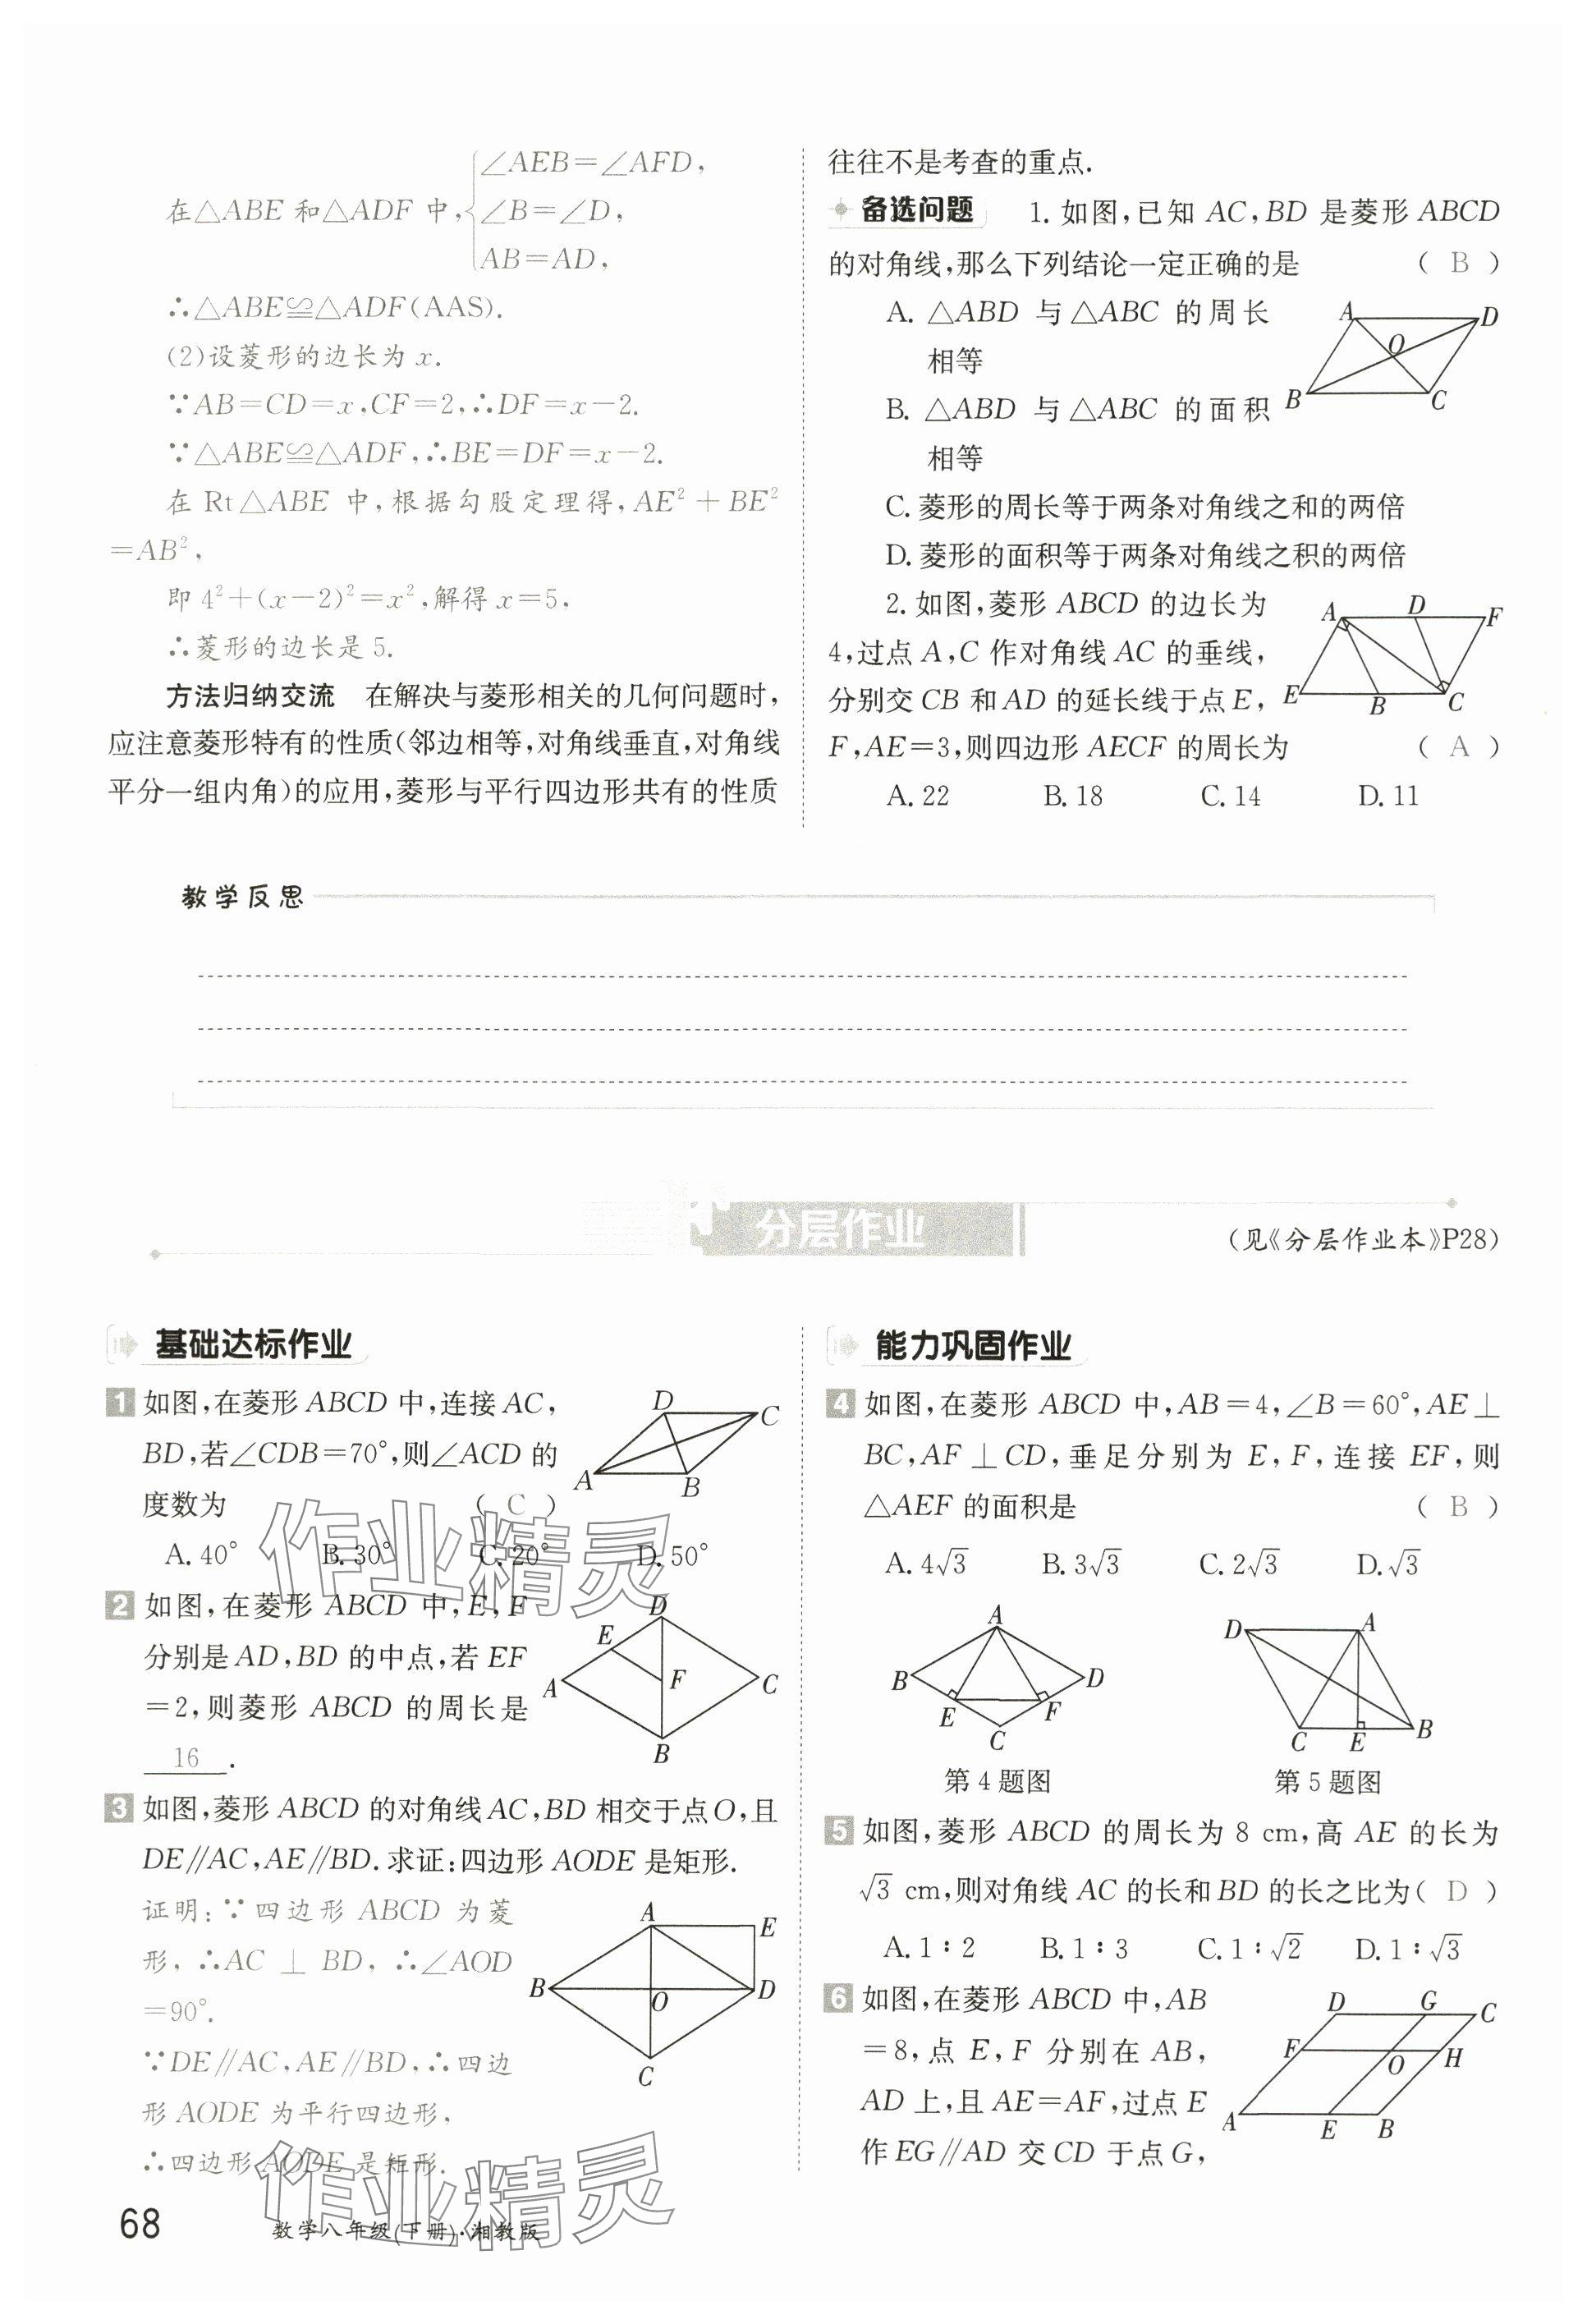 在△ABE 和△ADF 中,{∠AEB=∠AFD,
∠B=∠D,
AB=AD,
∴△ABE≌△ADF(AAS).
(2)设菱形的边长为 x.
∵AB=CD=x,CF=2,∴DF=x-2.
∵△ABE≌△ADF,∴BE=DF=x-2.
在 Rt△ABE 中,根据勾股定理得,AE²+BE²
=AB²,
即 4²+(x-2)²=x²,解得 x=5,
∴菱形的边长是 5.
方法归纳交流 在解决与菱形相关的几何问题时,
应注意菱形特有的性质(邻边相等,对角线垂直,对角线
平分一组内角)的应用,菱形与平行四边形共有的性质
往往不是考查的重点.
备选问题 1. 如图,已知 AC,BD 是菱形 ABCD
的对角线,那么下列结论一定正确的是 ( B )
A. △ABD 与△ABC 的周长
相等
B. △ABD 与△ABC 的面积
相等
A
D
O
B
C
C. 菱形的周长等于两条对角线之和的两倍
D. 菱形的面积等于两条对角线之积的两倍
2. 如图,菱形 ABCD 的边长为
4,过点 A,C 作对角线 AC 的垂线,
分别交 CB 和 AD 的延长线于点 E,
F,AE=3,则四边形 AECF 的周长为 ( A )
A
D
F
E
B
C
A. 22 B. 18 C. 14 D. 11
教学反思
分层作业
(见《分层作业本》P28)
基础达标作业
1 如图,在菱形 ABCD 中,连接 AC,
BD,若∠CDB=70°,则∠ACD 的
度数为 ( C )
D
C
A
B
A. 40° B. 30° C. 20° D. 50°
2 如图,在菱形 ABCD 中,E,F
分别是 AD,BD 的中点,若 EF
=2,则菱形 ABCD 的周长是
16 .
D
E
A
F
C
B
3 如图,菱形 ABCD 的对角线 AC,BD 相交于点 O,且
DE∥AC,AE∥BD. 求证:四边形 AODE 是矩形.
证明:∵四边形 ABCD 为菱
形,∴AC⊥BD,∴∠AOD
=90°.
∵DE∥AC,AE∥BD,∴四边
形 AODE 为平行四边形,
∴四边形 AODE 是矩形.
A
E
B
O
D
C
能力巩固作业
4 如图,在菱形 ABCD 中,AB=4,∠B=60°,AE⊥
BC,AF⊥CD,垂足分别为 E,F,连接 EF,则
△AEF 的面积是 ( B )
A. 4√3 B. 3√3 C. 2√3 D. √3
A
B
D
E
F
C
第 4 题图
D
A
C
E
B
第 5 题图
5 如图,菱形 ABCD 的周长为 8 cm,高 AE 的长为
√3 cm,则对角线 AC 的长和 BD 的长之比为( D )
A. 1∶2 B. 1∶3 C. 1∶√2 D. 1∶√3
6 如图,在菱形 ABCD 中,AB
=8,点 E,F 分别在 AB,
AD 上,且 AE=AF,过点 E
作 EG∥AD 交 CD 于点 G,
D
G
C
F
O
H
A
E
B
作业精灵
作业精灵
68
数学八年级(下册)·湘教版